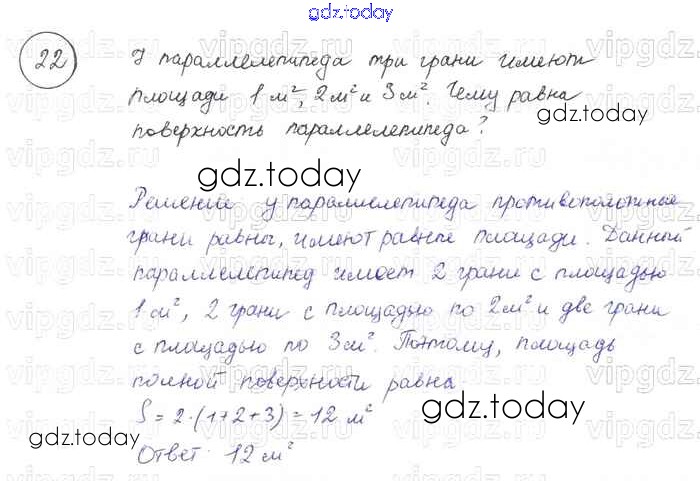 gdz.today
22 У параллелепипеда три грани имеют
площади 1 м², 2 м² и 3 м². Чему равна
поверхность параллелепипеда?
gdz.today
gdz.today
Решение у параллелепипеда противоположные
грани равны, имеют равные площади. Данный
параллелепипед имеет 2 грани с площадью
1 м², 2 грани с площадью по 2 м² и две грани
с площадью по 3 м². Поэтому, площадь
полной поверхности равна
S = 2·(1+2+3) = 12 м²
gdz.today
gdz.today
Ответ 12 м²